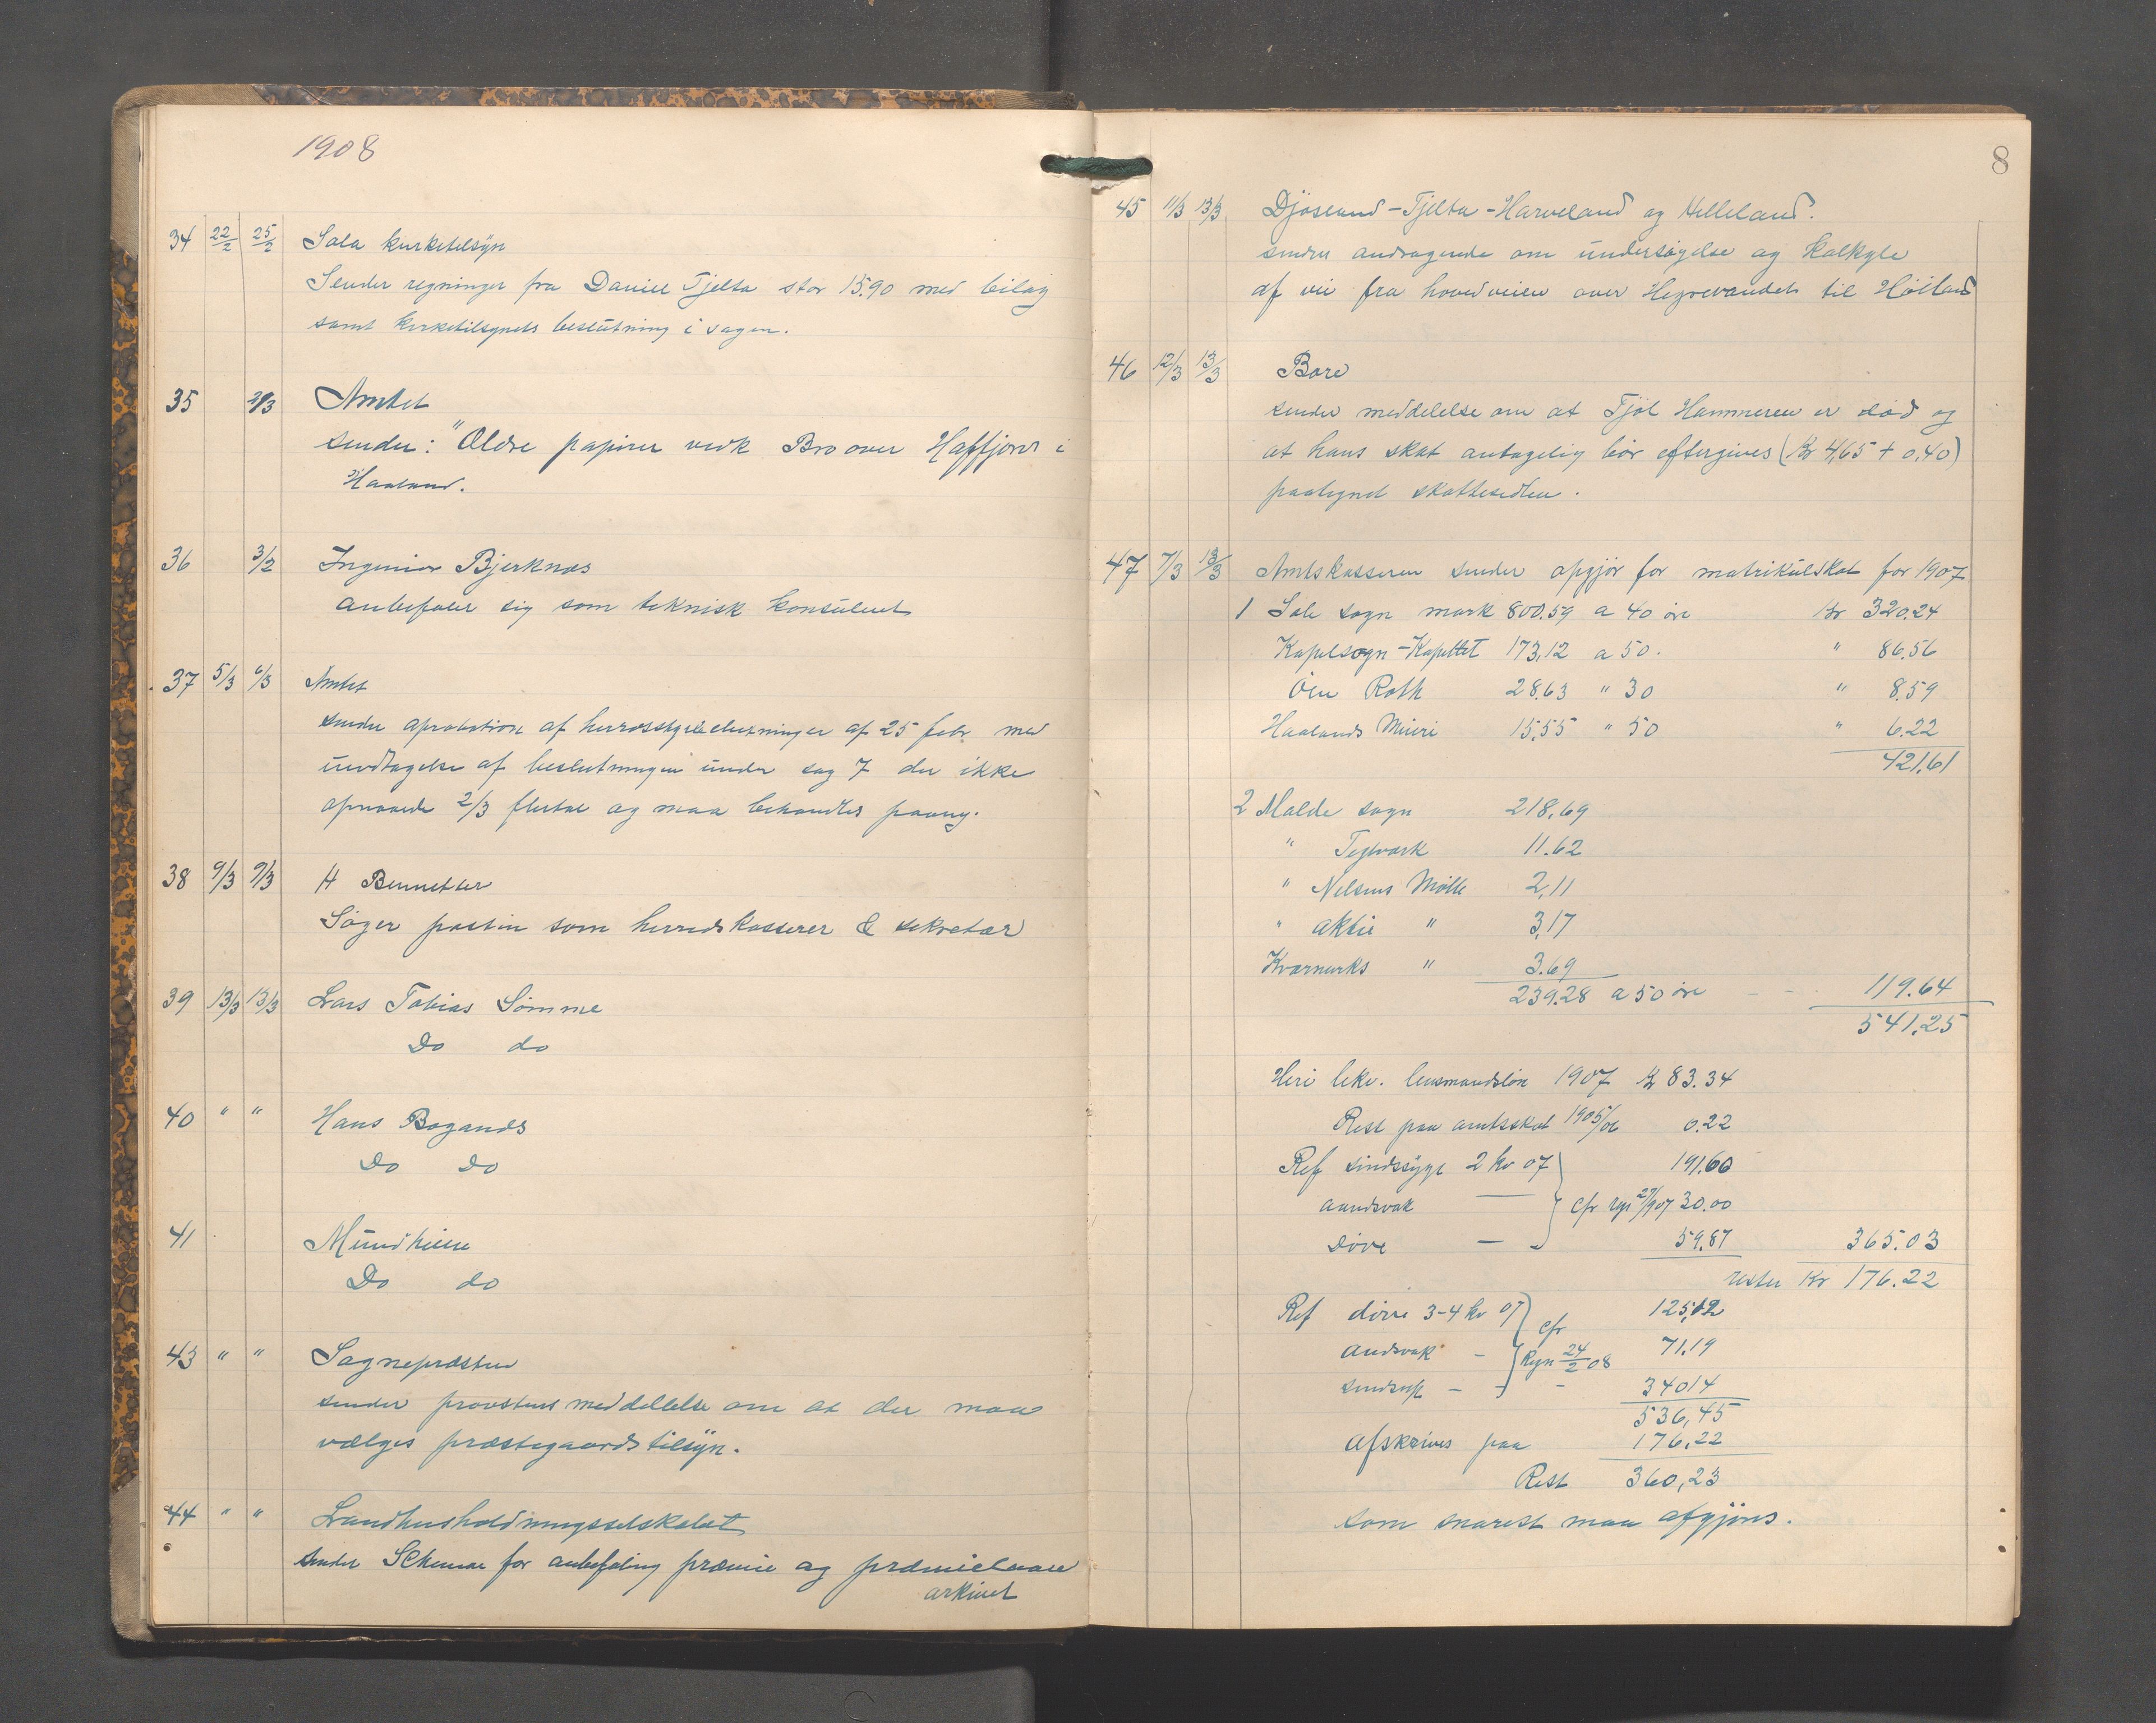 1908
34 22/2 25/2 Sola kirketilsyn
Sender regninger fra Daniel Tjelta stor 15.90 med bilag
samt kirketilsynets beslutning i sagen.
35 2/3 Amtet
sender: "Ældre papirer vedk Bro over Hafsfjord i
Haaland.
36 3/2 Ingeniør Bjerknæs
anbefaler sig som teknisk konsulent
37 5/3 6/3 Amtet
sender aprobation af herredsstyrebeslutninger af 25 febr med
undtagelse af beslutningen under sag 7 der ikke
opnaaede 2/3 flertal og maa behandles paany.
38 9/3 9/3 H Bennetter
Söger posten som herredskasserer & sekretær
39 13/3 13/3 Lars Tobias Sömme
Do do
40 " " Hans Bogands
Do Do
41 Mundheim
Do do
43 " " Sognepræsten
sender provstens meddelelse om at der maa
vælges præstegaardstilsyn.
44 " " Landhusholdningsselskabet
sender Schemaer for anbefaling præmie og præmielaan
arkivet
8
45 11/3 13/3 Djøseland-Tjelta-Harveland og Helleland.
sender andragende om undersøgelse og kalkyle
af vei fra hovedveien over Hegrevandet til Höiland
46 12/3 13/3 Bore
sender meddelelse om at Tjöl Hammeren er död og
at hans skat antagelig bör eftergives (Kr 4,65 + 0,40)
paategnet skattesedlen.
47 7/3 13/3 Amtskasseren sender opgjör for matrikulskat for 1907
1 Sole sogn mark 800.59 a 40 öre Kr 320.24
Kapelsogn-Kapellet 173,12 a 50. " 86,56
Öen Roth 28,63 " 30 " 8.59
Haalands Meieri 15,55 " 50 " 6.22
421,61
2 Malde sogn 218,69
" Teglværk 11.62
" Nelsens Mölle 2,11
" Aktie " 3,17
Kværneviks " 3.69
239.28 a 50 öre - - 119.64
541,25
Heri bekv. lensmandslön 1907 Kr 83.34
Rest paa amtsskat 1905/06 0.22
Ref sindssyge 2 kv 07 191.60
aandsvak — cfr rgn 27/9 07 30.00
Döve — 59.87 365.03
rester Kr 176.22
Ref döve 3-4 kv 07 cfr 125,12
Andsvak - Regn 24/2 08 71.19
sindssyk - - - 340 14
536,45
Afskrives paa 176,22
Rest 360,23
som snarest maa afgjöres.